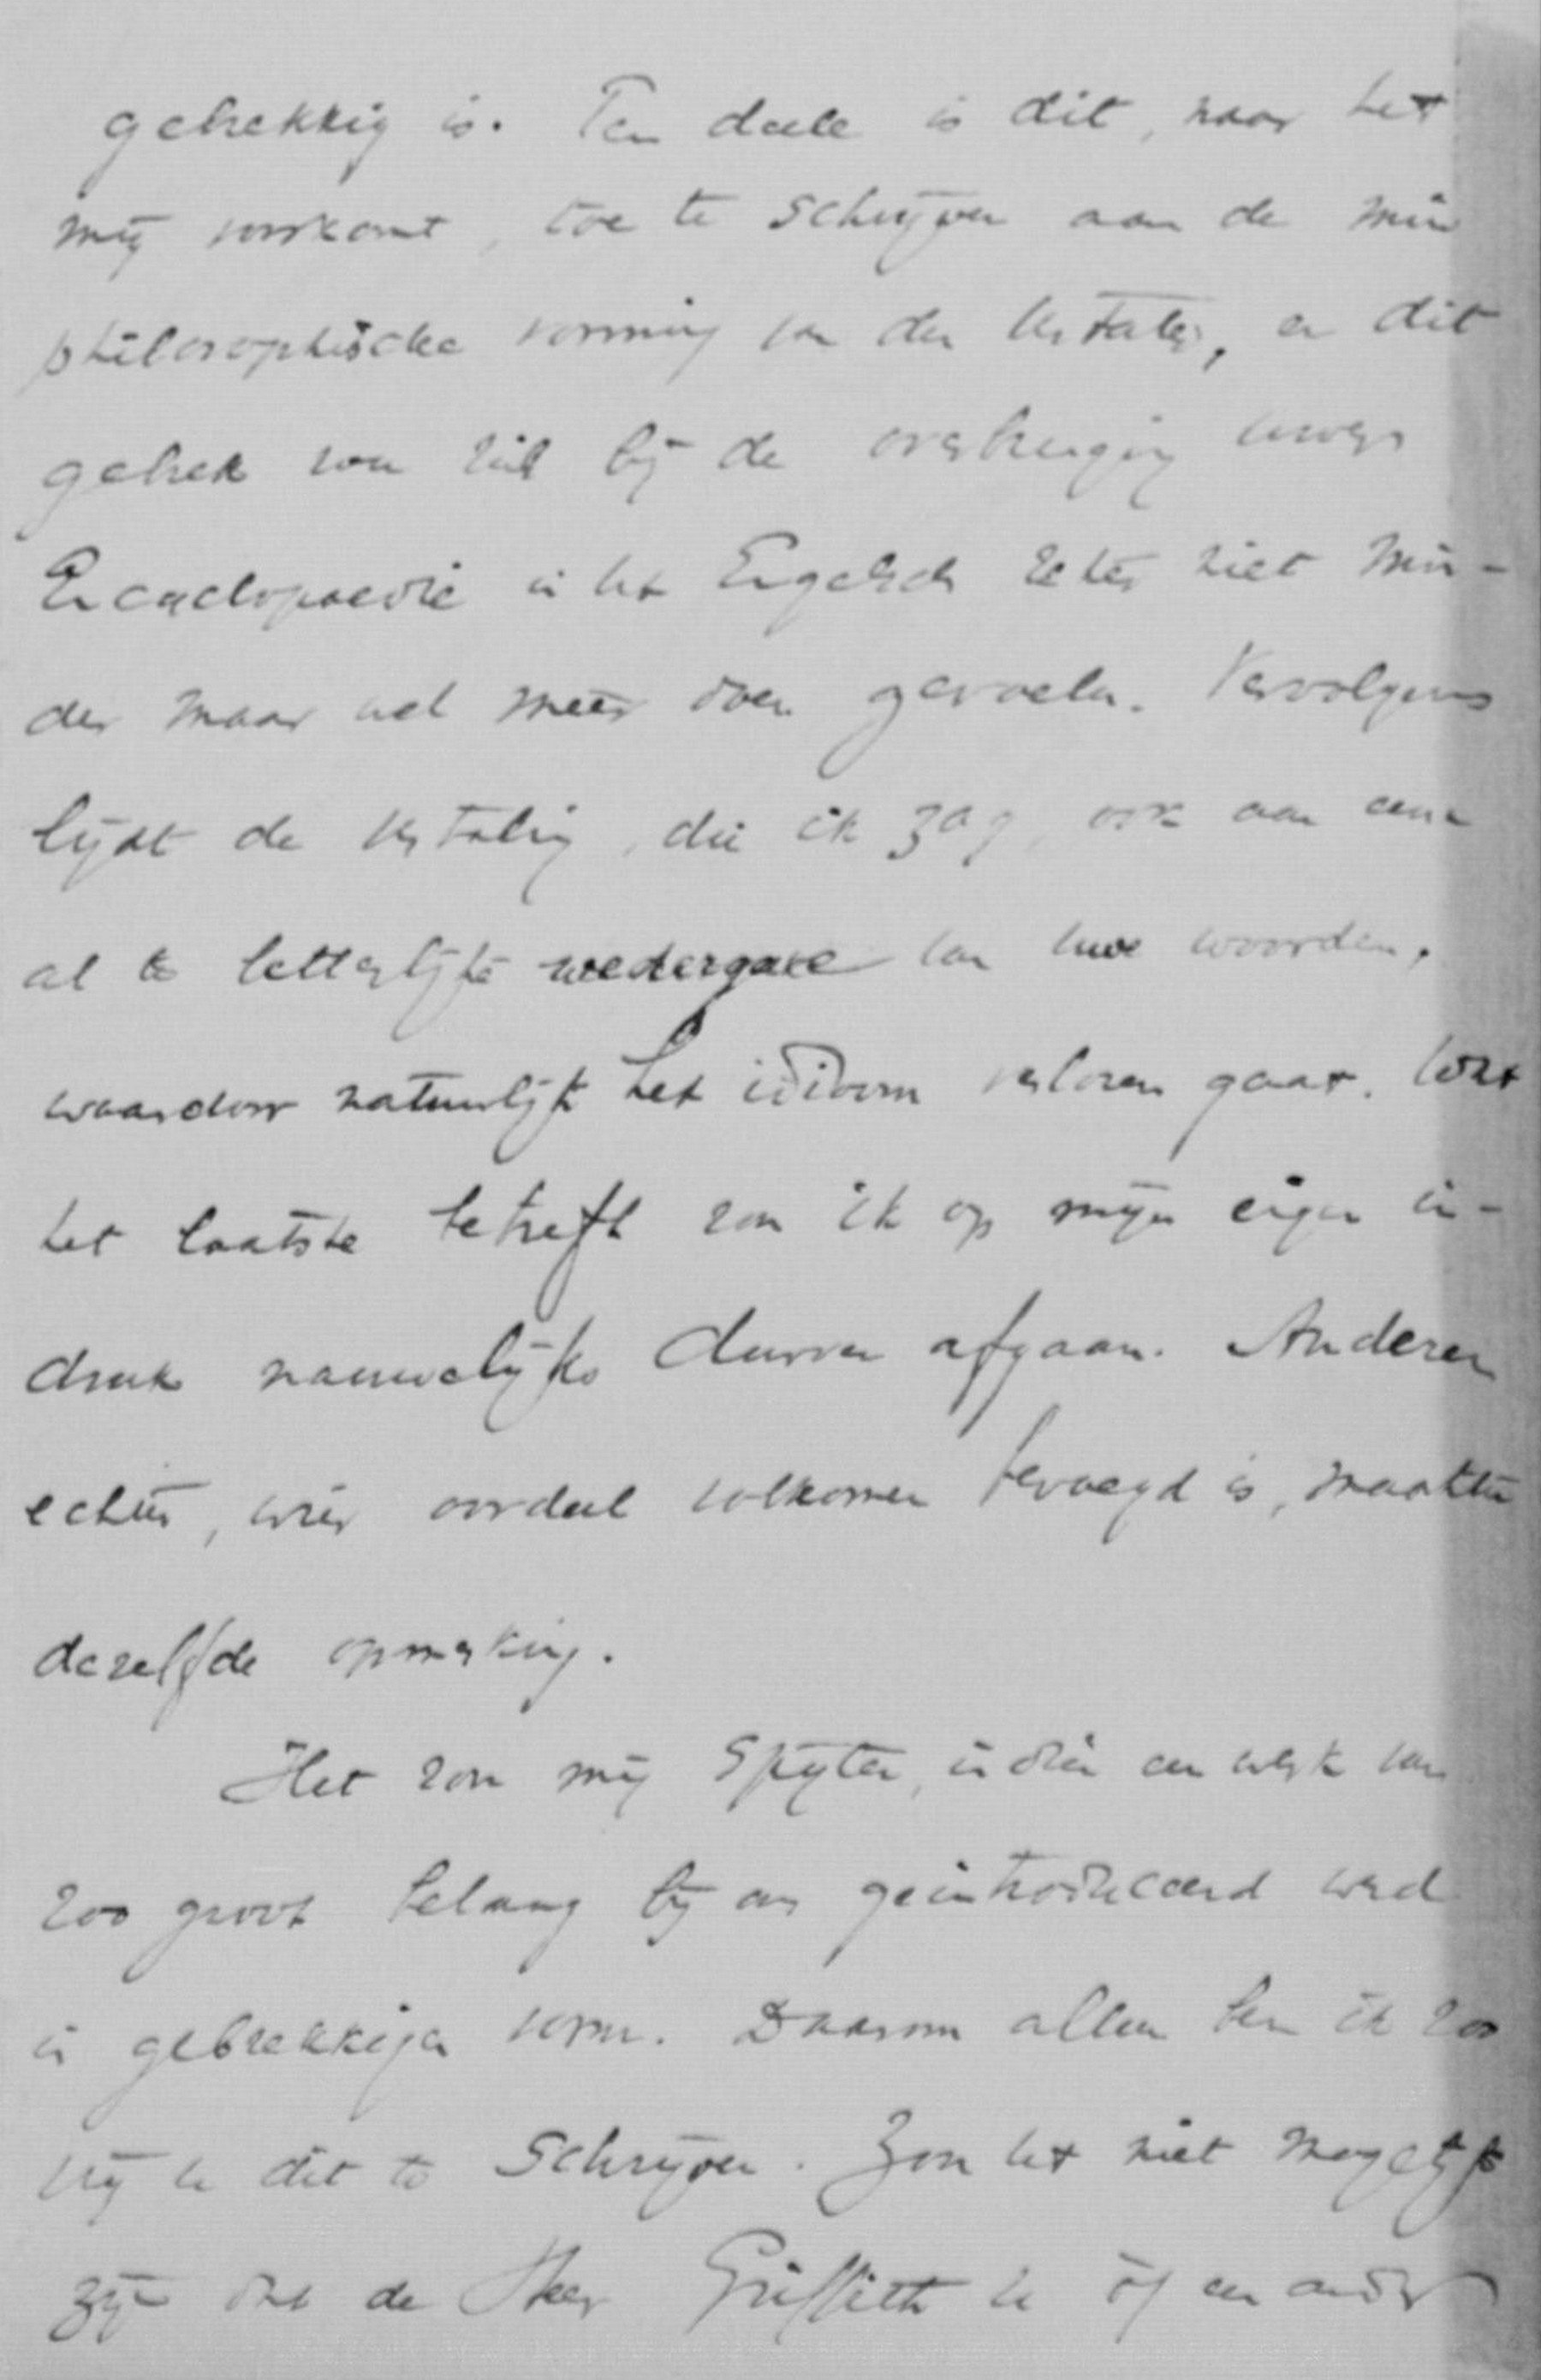 gebrekkig is. Ten deele is dit, naar het
mij voorkomt, toe te schrijven aan de min
philosophische vorming van den vertaler, en dit
gebrek zou zich bij de overbrenging uwer
Encyclopaedie in het Engelsch zeker niet min-
der maar wel meer doen gevoelen. Vervolgens
lijdt de vertaling, die ik zag, ook aan eene
al te letterlijke wedergave van uwe woorden,
waardoor natuurlijk het idioom verloren gaat. Wat
het laatste betreft zou ik op mijn eigen in-
druk nauwelijks durven afgaan. Anderen
echter, wier oordeel volkomen bevoegd is, maakten
dezelfde opmerking.
Het zou mij spijten, indien een werk van
zoo groot belang bij ons geïntroduceerd werd
in gebrekkigen vorm. Daarom alleen ben ik zoo
vrij u dit te schrijven. Zou het niet mogelijk
zijn dat de Heer Griffith u of een ander